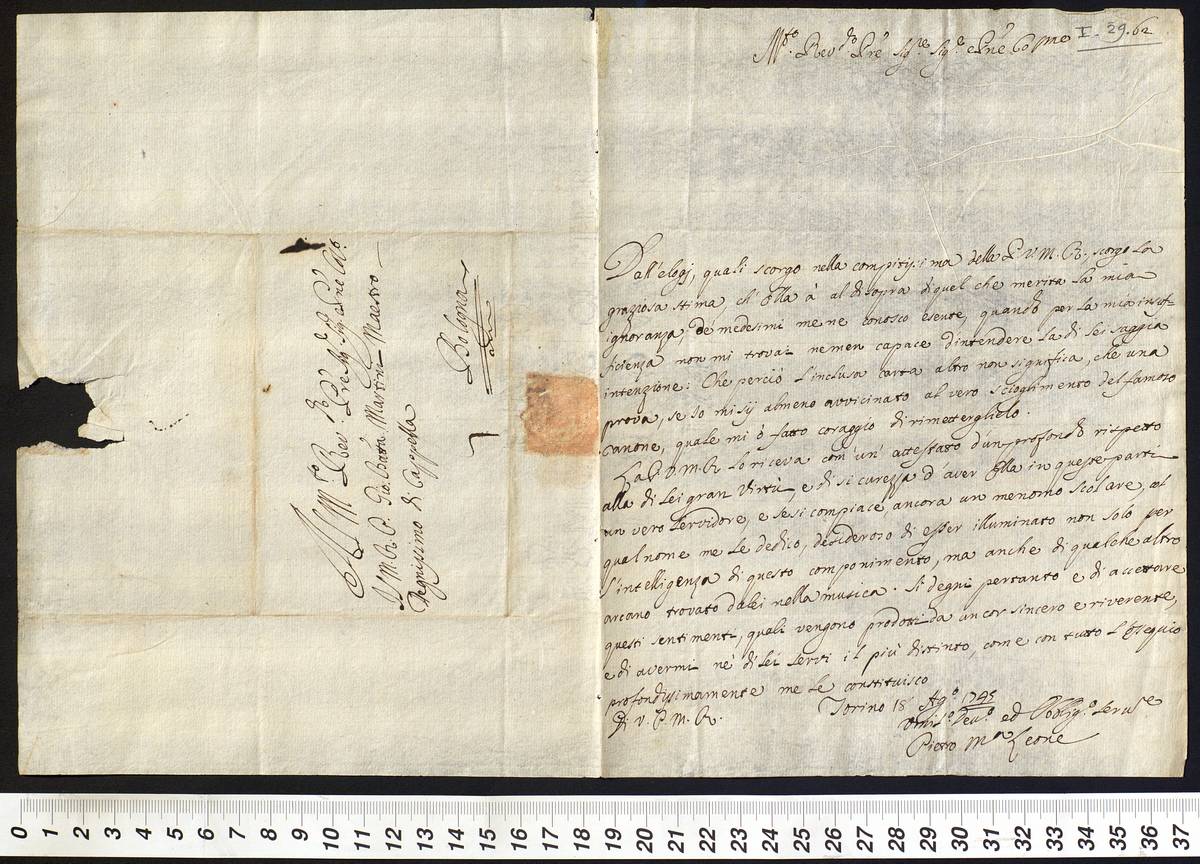 M.to Rev.do Pre Sig.re Sig.e e Pne Col.mo
I. 29. 62
Dall'elogj, quali scorgo nella compitissima della P. V. M. R., scorgo la
graziosa stima ch'Ella à al disopra di quel che merita la mia
ignoranza; De medesimi me ne conosco esente, quando per la mia insuf-
ficienza non mi trovai nemen capace d'intendere la di lei saggia
intenzione: Che perciò l'inclusa carta altro non significa, che una
prova, se Io mi sij almeno avvicinato al vero scioglimento del famoso
canone, quale mi ò fatto coraggio di rimetterglielo.
La P. V. M. R. lo riceva com'un'attestato d'un profondo rispetto
alla di Lei gran Virtù, e di sicurezza d'aver Ella in queste parti
un vero servidore, e se si compiace, ancora un menomo scolare, al
qual nome me le dedico, desideroso di esser illuminato non solo per
l'intelligenza di questo componimento, ma anche di qualche altro
arcano trovato da lei nella musica. Si degni pertanto e di accettare
questi sentimenti, quali vengono prodotti da un cor sincero e riverente,
e di avermi ne di lei servi il più distinto, come con tutto l'Ossequio
profondissimamente me le constituisco
Di V. P. M. R.
Torino 18 Ag.o 1745
Umil.o Dev.o ed Obblig.o Serv.e
Pietro M.a Leone
Al M.to Rev.do Pre Sig. Pne Col.o
Il M. R. P. Gio. Batta Martini Maestro
Degnissimo di Cappella
Bologna
0 1 2 3 4 5 6 7 8 9 10 11 12 13 14 15 16 17 18 19 20 21 22 23 24 25 26 27 28 29 30 31 32 33 34 35 36 37